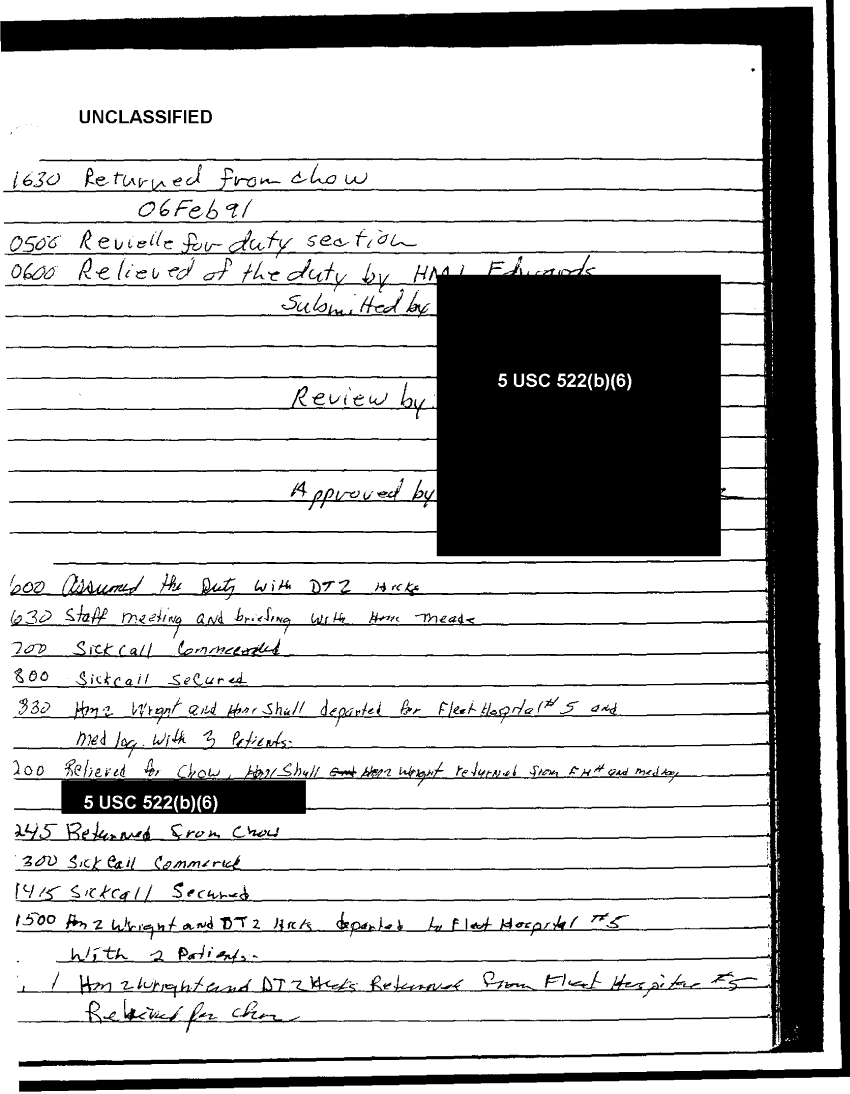 UNCLASSIFIED
1630 Returned from chow
06Feb91
0500 Revielle for duty section
0600 Relieved of the duty by HM1 Edwards
Submitted by
5 USC 522(b)(6)
Review by
Approved by
600 Assumed the Duty with DT2 Hicks
630 Staff meeting and briefing with Hmc Meade
700 Sickcall Commenced
800 Sickcall Secured
330 Hm2 Wright and Hmc Shull departed for Fleet Hospital #5 and
med log. with 3 Patients.
200 Relieved for Chow, Shull and Hm2 Wright returned from FH# and medlog
5 USC 522(b)(6)
245 Returned from Chow
300 SickCall Commence
1415 Sickcall Secured
1500 Hm2 Wright and DT2 Hicks departed to Fleet Hospital #5
With 2 Patients.
Hm2 Wright and DT2 Hicks Returned from Fleet Hospital #5
Relieved for Chow